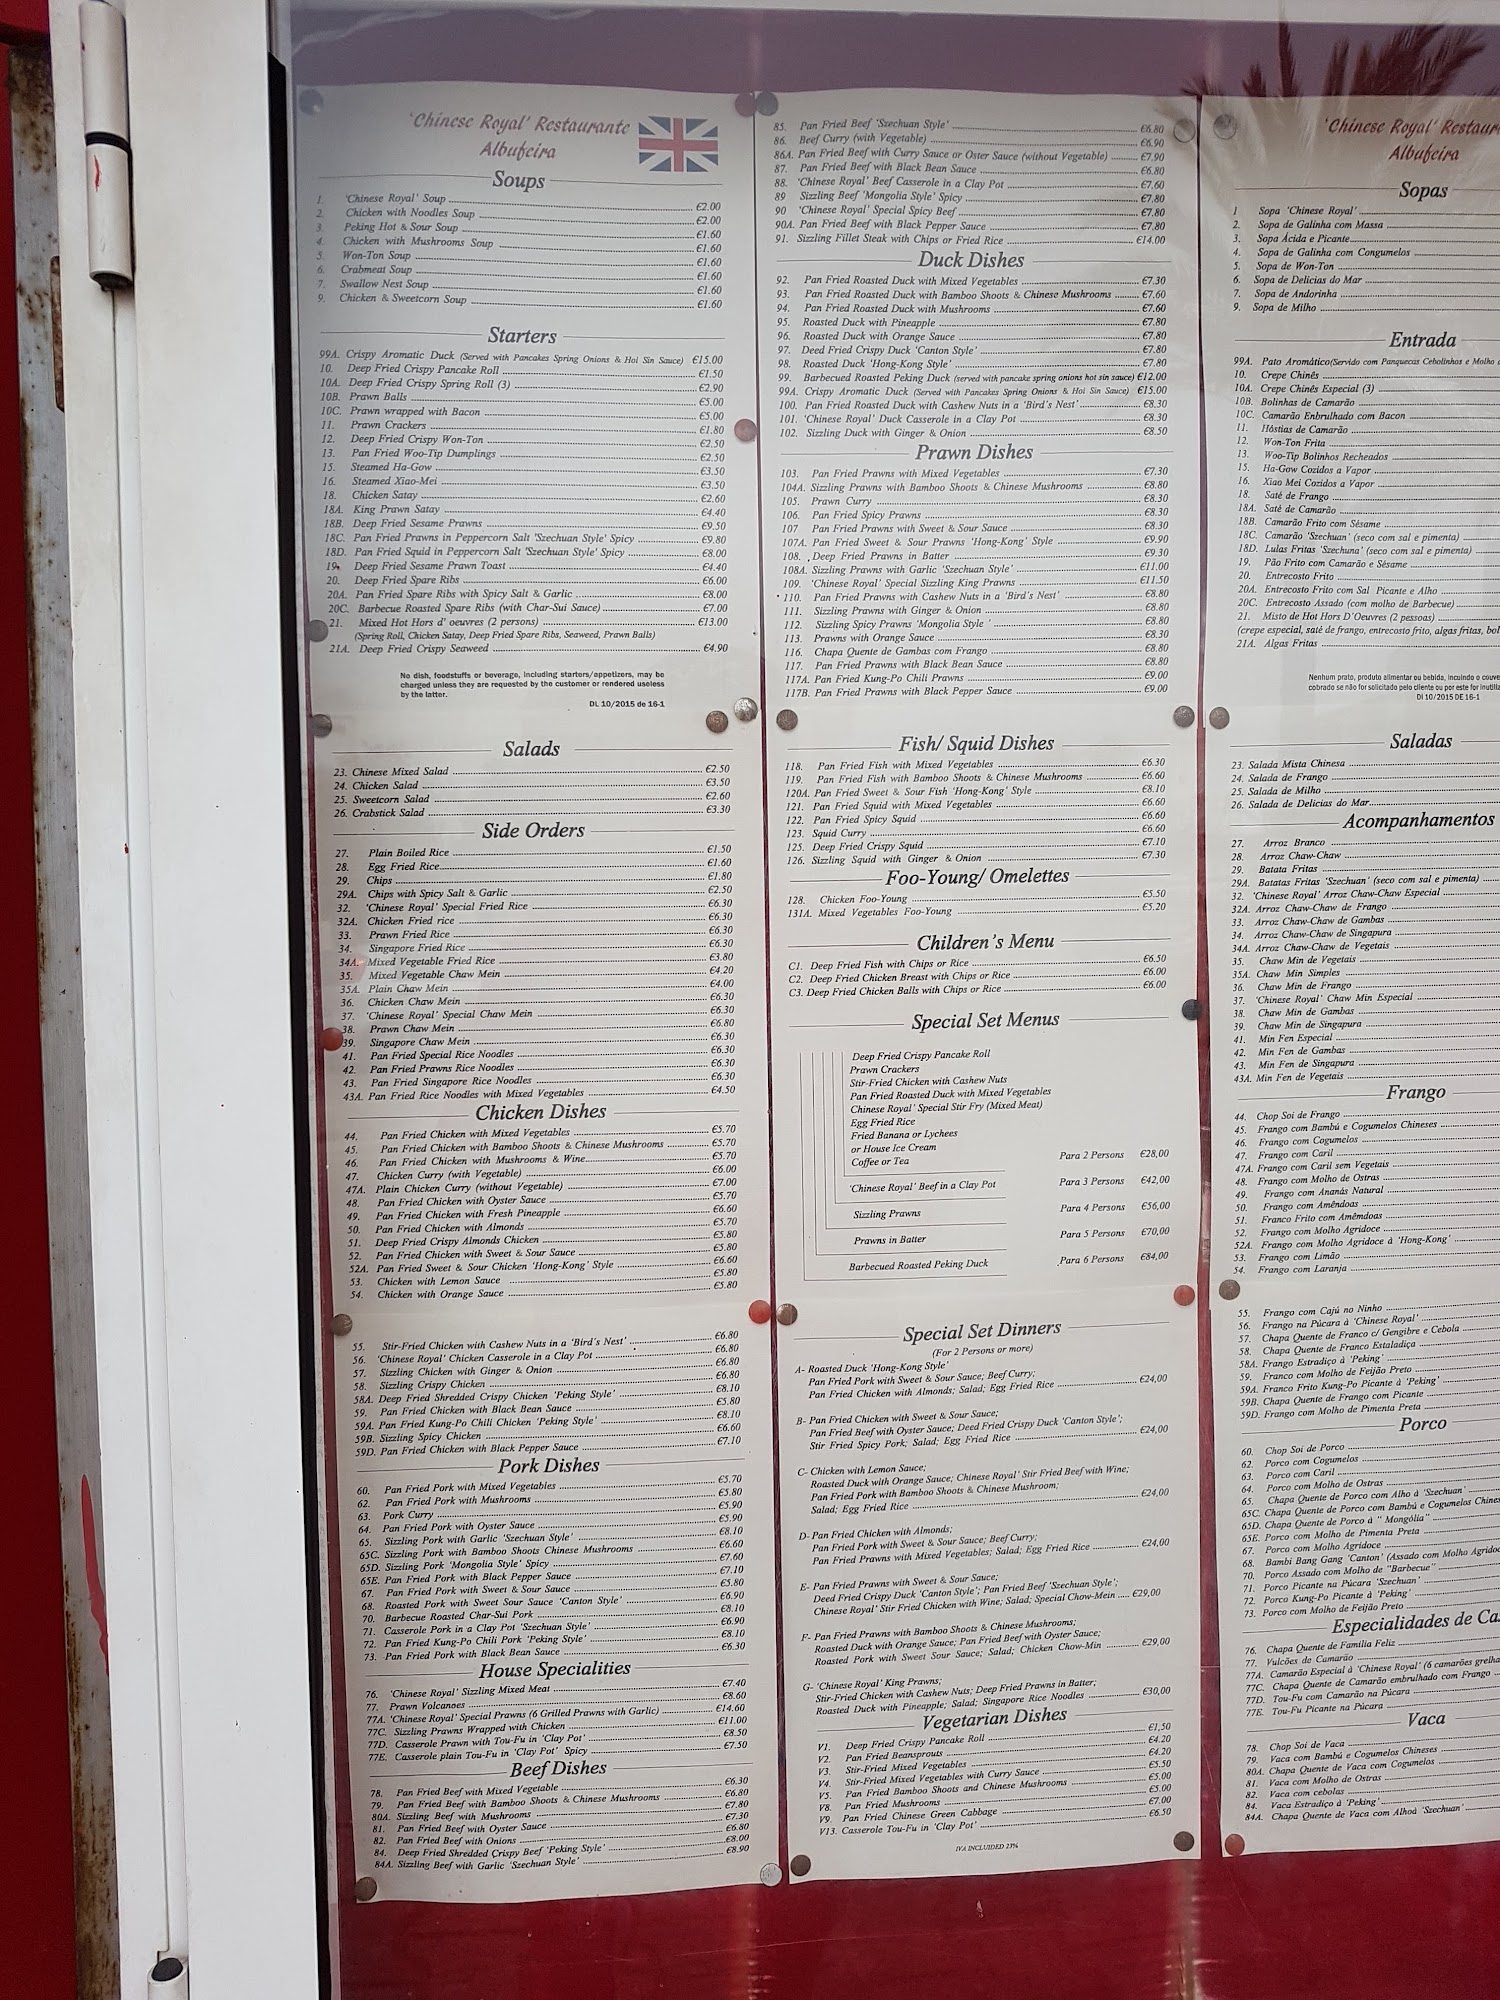 'Chinese Royal' Restaurante
Albufeira
Soups
1. 'Chinese Royal' Soup €2.00
2. Chicken with Noodles Soup €2.00
3. Peking Hot & Sour Soup €1.60
4. Chicken with Mushrooms Soup €1.60
5. Won-Ton Soup €1.60
6. Crabmeat Soup €1.60
7. Swallow Nest Soup €1.60
9. Chicken & Sweetcorn Soup €1.60
Starters
99A. Crispy Aromatic Duck (Served with Pancakes Spring Onions & Hoi Sin Sauce) €15.00
10. Deep Fried Crispy Pancake Roll €1.50
10A. Deep Fried Crispy Spring Roll (3) €2.90
10B. Prawn Balls €5.00
10C. Prawn wrapped with Bacon €5.00
11. Prawn Crackers €1.80
12. Deep Fried Crispy Won-Ton €2.50
13. Pan Fried Woo-Tip Dumplings €2.50
15. Steamed Ha-Gow €3.50
16. Steamed Xiao-Mei €3.50
18. Chicken Satay €2.60
18A. King Prawn Satay €4.40
18B. Deep Fried Sesame Prawns €9.50
18C. Pan Fried Prawns in Peppercorn Salt 'Szechuan Style' Spicy €9.80
18D. Pan Fried Squid in Peppercorn Salt 'Szechuan Style' Spicy €8.00
19. Deep Fried Sesame Prawn Toast €4.40
20. Deep Fried Spare Ribs €6.00
20A. Pan Fried Spare Ribs with Spicy Salt & Garlic €8.00
20C. Barbecue Roasted Spare Ribs (with Char-Sui Sauce) €7.00
21. Mixed Hot Hors d' oeuvres (2 persons) €13.00
(Spring Roll, Chicken Satay, Deep Fried Spare Ribs, Seaweed, Prawn Balls)
21A. Deep Fried Crispy Seaweed €4.90
No dish, foodstuffs or beverage, including starters/appetizers, may be
charged unless they are requested by the customer or rendered useless
by the latter.
DL 10/2015 de 16-1
Salads
23. Chinese Mixed Salad €2.50
24. Chicken Salad €3.50
25. Sweetcorn Salad €2.60
26. Crabstick Salad €3.30
Side Orders
27. Plain Boiled Rice €1.50
28. Egg Fried Rice €1.60
29. Chips €1.80
29A. Chips with Spicy Salt & Garlic €2.50
32. 'Chinese Royal' Special Fried Rice €6.30
32A. Chicken Fried rice €6.30
33. Prawn Fried Rice €6.30
34. Singapore Fried Rice €6.30
34A. Mixed Vegetable Fried Rice €3.80
35. Mixed Vegetable Chaw Mein €4.20
35A. Plain Chaw Mein €4.00
36. Chicken Chaw Mein €6.30
37. 'Chinese Royal' Special Chaw Mein €6.30
38. Prawn Chaw Mein €6.80
39. Singapore Chaw Mein €6.30
41. Pan Fried Special Rice Noodles €6.30
42. Pan Fried Prawns Rice Noodles €6.30
43. Pan Fried Singapore Rice Noodles €6.30
43A. Pan Fried Rice Noodles with Mixed Vegetables €4.50
Chicken Dishes
44. Pan Fried Chicken with Mixed Vegetables €5.70
45. Pan Fried Chicken with Bamboo Shoots & Chinese Mushrooms €5.70
46. Pan Fried Chicken with Mushrooms & Wine €5.70
47. Chicken Curry (with Vegetable) €6.00
47A. Plain Chicken Curry (without Vegetable) €7.00
48. Pan Fried Chicken with Oyster Sauce €5.70
49. Pan Fried Chicken with Fresh Pineapple €6.60
50. Pan Fried Chicken with Almonds €5.70
51. Deep Fried Crispy Almonds Chicken €5.80
52. Pan Fried Chicken with Sweet & Sour Sauce €5.80
52A. Pan Fried Sweet & Sour Chicken 'Hong-Kong' Style €6.60
53. Chicken with Lemon Sauce €5.80
54. Chicken with Orange Sauce €5.80
55. Stir-Fried Chicken with Cashew Nuts in a 'Bird's Nest' €6.80
56. 'Chinese Royal' Chicken Casserole in a Clay Pot €6.80
57. Sizzling Chicken with Ginger & Onion €6.80
58. Sizzling Crispy Chicken €6.80
58A. Deep Fried Shredded Crispy Chicken 'Peking Style' €8.10
59. Pan Fried Chicken with Black Bean Sauce €5.80
59A. Pan Fried Kung-Po Chili Chicken 'Peking Style' €8.10
59B. Sizzling Spicy Chicken €6.60
59D. Pan Fried Chicken with Black Pepper Sauce €7.10
Pork Dishes
60. Pan Fried Pork with Mixed Vegetables €5.70
62. Pan Fried Pork with Mushrooms €5.80
63. Pork Curry €5.90
64. Pan Fried Pork with Oyster Sauce €5.90
65. Sizzling Pork with Garlic 'Szechuan Style' €8.10
65C. Sizzling Pork with Bamboo Shoots Chinese Mushrooms €6.60
65D. Sizzling Pork 'Mongolia Style' Spicy €7.60
65E. Pan Fried Pork with Black Pepper Sauce €7.10
67. Pan Fried Pork with Sweet & Sour Sauce €5.80
68. Roasted Pork with Sweet Sour Sauce 'Canton Style' €6.90
70. Barbecue Roasted Char-Sui Pork €8.10
71. Casserole Pork in a Clay Pot 'Szechuan Style' €6.90
72. Pan Fried Kung-Po Chili Pork 'Peking Style' €8.10
73. Pan Fried Pork with Black Bean Sauce €6.30
House Specialities
76. 'Chinese Royal' Sizzling Mixed Meat €7.40
77. Prawn Volcanoes €8.60
77A. 'Chinese Royal' Special Prawns (6 Grilled Prawns with Garlic) €14.60
77C. Sizzling Prawns Wrapped with Chicken €11.00
77D. Casserole Prawn with Tou-Fu in 'Clay Pot' €8.50
77E. Casserole plain Tou-Fu in 'Clay Pot' Spicy €7.50
Beef Dishes
78. Pan Fried Beef with Mixed Vegetable €6.30
79. Pan Fried Beef with Bamboo Shoots & Chinese Mushrooms €6.80
80A. Sizzling Beef with Mushrooms €7.80
81. Pan Fried Beef with Oyster Sauce €7.30
82. Pan Fried Beef with Onions €6.80
84. Deep Fried Shredded Crispy Beef 'Peking Style' €8.00
84A. Sizzling Beef with Garlic 'Szechuan Style' €8.90
85. Pan Fried Beef 'Szechuan Style' €6.80
86. Beef Curry (with Vegetable) €6.90
86A. Pan Fried Beef with Curry Sauce or Oster Sauce (without Vegetable) €7.90
87. Pan Fried Beef with Black Bean Sauce €6.80
88. 'Chinese Royal' Beef Casserole in a Clay Pot €7.60
89 Sizzling Beef 'Mongolia Style' Spicy €7.80
90 'Chinese Royal' Special Spicy Beef €7.80
90A. Pan Fried Beef with Black Pepper Sauce €7.80
91. Sizzling Fillet Steak with Chips or Fried Rice €14.00
Duck Dishes
92. Pan Fried Roasted Duck with Mixed Vegetables €7.30
93. Pan Fried Roasted Duck with Bamboo Shoots & Chinese Mushrooms €7.60
94. Pan Fried Roasted Duck with Mushrooms €7.60
95. Roasted Duck with Pineapple €7.80
96. Roasted Duck with Orange Sauce €7.80
97. Deed Fried Crispy Duck 'Canton Style' €7.80
98. Roasted Duck 'Hong-Kong Style' €7.80
99. Barbecued Roasted Peking Duck (served with pancake spring onions hot sin sauce) €12.00
99A. Crispy Aromatic Duck (Served with Pancakes Spring Onions & Hoi Sin Sauce) €15.00
100. Pan Fried Roasted Duck with Cashew Nuts in a 'Bird's Nest' €8.30
101. 'Chinese Royal' Duck Casserole in a Clay Pot €8.30
102. Sizzling Duck with Ginger & Onion €8.50
Prawn Dishes
103. Pan Fried Prawns with Mixed Vegetables €7.30
104A. Sizzling Prawns with Bamboo Shoots & Chinese Mushrooms €8.80
105. Prawn Curry €8.30
106. Pan Fried Spicy Prawns €8.30
107 Pan Fried Prawns with Sweet & Sour Sauce €8.30
107A. Pan Fried Sweet & Sour Prawns 'Hong-Kong' Style €9.90
108. Deep Fried Prawns in Batter €9.30
108A. Sizzling Prawns with Garlic 'Szechuan Style' €11.00
109. 'Chinese Royal' Special Sizzling King Prawns €11.50
110. Pan Fried Prawns with Cashew Nuts in a 'Bird's Nest' €8.80
111. Sizzling Prawns with Ginger & Onion €8.80
112. Sizzling Spicy Prawns 'Mongolia Style ' €8.80
113. Prawns with Orange Sauce €8.30
116. Chapa Quente de Gambas com Frango €8.80
117. Pan Fried Prawns with Black Bean Sauce €8.80
117A. Pan Fried Kung-Po Chili Prawns €9.00
117B. Pan Fried Prawns with Black Pepper Sauce €9.00
Fish/ Squid Dishes
118. Pan Fried Fish with Mixed Vegetables €6.30
119. Pan Fried Fish with Bamboo Shoots & Chinese Mushrooms €6.60
120A. Pan Fried Sweet & Sour Fish 'Hong-Kong' Style €8.10
121. Pan Fried Squid with Mixed Vegetables €6.60
122. Pan Fried Spicy Squid €6.60
123. Squid Curry €6.60
125. Deep Fried Crispy Squid €7.10
126. Sizzling Squid with Ginger & Onion €7.30
Foo-Young/ Omelettes
128. Chicken Foo-Young €5.50
131A. Mixed Vegetables Foo-Young €5.20
Children's Menu
C1. Deep Fried Fish with Chips or Rice €6.50
C2. Deep Fried Chicken Breast with Chips or Rice €6.00
C3. Deep Fried Chicken Balls with Chips or Rice €6.00
Special Set Menus
Deep Fried Crispy Pancake Roll
Prawn Crackers
Stir-Fried Chicken with Cashew Nuts
Pan Fried Roasted Duck with Mixed Vegetables
Chinese Royal' Special Stir Fry (Mixed Meat)
Egg Fried Rice
Fried Banana or Lychees
or House Ice Cream
Coffee or Tea Para 2 Persons €28,00
'Chinese Royal' Beef in a Clay Pot Para 3 Persons €42,00
Sizzling Prawns Para 4 Persons €56,00
Prawns in Batter Para 5 Persons €70,00
Barbecued Roasted Peking Duck Para 6 Persons €84,00
Special Set Dinners
(For 2 Persons or more)
A- Roasted Duck 'Hong-Kong Style'
Pan Fried Pork with Sweet & Sour Sauce; Beef Curry;
Pan Fried Chicken with Almonds; Salad; Egg Fried Rice €24,00
B- Pan Fried Chicken with Sweet & Sour Sauce;
Pan Fried Beef with Oyster Sauce; Deed Fried Crispy Duck 'Canton Style';
Stir Fried Spicy Pork; Salad; Egg Fried Rice €24,00
C- Chicken with Lemon Sauce;
Roasted Duck with Orange Sauce; Chinese Royal' Stir Fried Beef with Wine;
Pan Fried Pork with Bamboo Shoots & Chinese Mushroom;
Salad; Egg Fried Rice €24,00
D- Pan Fried Chicken with Almonds;
Pan Fried Pork with Sweet & Sour Sauce; Beef Curry;
Pan Fried Prawns with Mixed Vegetables; Salad; Egg Fried Rice €24,00
E- Pan Fried Prawns with Sweet & Sour Sauce;
Deed Fried Crispy Duck 'Canton Style'; Pan Fried Beef 'Szechuan Style';
Chinese Royal' Stir Fried Chicken with Wine; Salad; Special Chow-Mein €29,00
F- Pan Fried Prawns with Bamboo Shoots & Chinese Mushrooms;
Roasted Duck with Orange Sauce; Pan Fried Beef with Oyster Sauce;
Roasted Pork with Sweet Sour Sauce; Salad; Chicken Chow-Min €29,00
G- 'Chinese Royal' King Prawns;
Stir-Fried Chicken with Cashew Nuts; Deep Fried Prawns in Batter;
Roasted Duck with Pineapple; Salad; Singapore Rice Noodles €30,00
Vegetarian Dishes
V1. Deep Fried Crispy Pancake Roll €1,50
V2. Pan Fried Beansprouts €4.20
V3. Stir-Fried Mixed Vegetables €4.20
V4. Stir-Fried Mixed Vegetables with Curry Sauce €5.50
V5. Pan Fried Bamboo Shoots and Chinese Mushrooms €5.00
V8. Pan Fried Mushrooms €5.00
V9. Pan Fried Chinese Green Cabbage €7.00
V13. Casserole Tou-Fu in 'Clay Pot' €6.50
IVA INCLUIDED 23%
'Chinese Royal' Restaur
Albufeira
Sopas
1 Sopa 'Chinese Royal'
2. Sopa de Galinha com Massa
3. Sopa Ácida e Picante
4. Sopa de Galinha com Congumelos
5. Sopa de Won-Ton
6. Sopa de Delicias do Mar
7. Sopa de Andorinha
9. Sopa de Milho
Entrada
99A. Pato Aromático(Servido com Panquecas Cebolinhos e Molho
10. Crepe Chinês
10A. Crepe Chinês Especial (3)
10B. Bolinhas de Camarão
10C. Camarão Enbrulhado com Bacon
11. Hóstias de Camarão
12. Won-Ton Frita
13. Woo-Tip Bolinhos Recheados
15. Ha-Gow Cozidos a Vapor
16. Xiao Mei Cozidos a Vapor
18. Saté de Frango
18A. Saté de Camarão
18B. Camarão Frito com Sésame
18C. Camarão "Szechuan" (seco com sal e pimenta)
18D. Lulas Fritas 'Szechuna' (seco com sal e pimenta)
19. Pão Frito com Camarão e Sésame
20. Entrecosto Frito
20A. Entrecosto Frito com Sal Picante e Alho
20C. Entrecosto Assado (com molho de Barbecue)
21. Misto de Hot Hors D'Oeuvres (2 pessoas)
(crepe especial, saté de frango, entrecosto frito, algas fritas, bol
21A. Algas Fritas
Nenhum prato, produto alimentar ou bebida, incuindo o couve
cobrado se não for solicitado pelo cliente ou por este for inutiliz
Dl 10/2015 DE 16-1
Saladas
23. Salada Mista Chinesa
24. Salada de Frango
25. Salada de Milho
26. Salada de Delicias do Mar
Acompanhamentos
27. Arroz Branco
28. Arroz Chaw-Chaw
29. Batata Fritas
29A. Batatas Fritas 'Szechuan' (seco com sal e pimenta)
32. 'Chinese Royal' Arroz Chaw-Chaw Especial
32A. Arroz Chaw-Chaw de Frango
33. Arroz Chaw-Chaw de Gambas
34. Arroz Chaw-Chaw de Singapura
34A. Arroz Chaw-Chaw de Vegetais
35. Chaw Min de Vegetais
35A. Chaw Min Simples
36. Chaw Min de Frango
37. 'Chinese Royal' Chaw Min Especial
38. Chaw Min de Gambas
39. Chaw Min de Singapura
41. Min Fen Especial
42. Min Fen de Gambas
43. Min Fen de Singapura
43A. Min Fen de Vegetais
Frango
44. Chop Soi de Frango
45. Frango com Bambú e Cogumelos Chineses
46. Frango com Cogumelos
47. Frango com Caril
47A. Frango com Caril sem Vegetais
48. Frango com Molho de Ostras
49. Frango com Ananás Natural
50. Frango com Amêndoas
51. Franco Frito com Amêmdoas
52. Frango com Molho Agridoce
52A. Frango com Molho Agridoce à 'Hong-Kong'
53. Frango com Limão
54. Frango com Laranja
55. Frango com Cajú no Ninho
56. Frango na Púcara à 'Chinese Royal'
57. Chapa Quente de Franco c/ Gengibre e Cebola
58. Chapa Quente de Franco Estaladiça
58A. Frango Estradiço à 'Peking'
59. Franco com Molho de Feijão Preto
59A. Franco Frito Kung-Po Picante à 'Peking'
59B. Chapa Quente de Frango com Picante
59D. Frango com Molho de Pimenta Preta
Porco
60. Chop Soi de Porco
62. Porco com Cogumelos
63. Porco com Caril
64. Porco com Molho de Ostras
65. Chapa Quente de Porco com Alho à 'Szechuan'
65C. Chapa Quente de Porco com Bambú e Cogumelos Chine
65D. Chapa Quente de Porco à " Mongólia"
65E. Porco com Molho de Pimenta Preta
67. Porco com Molho Agridoce
68. Bambi Bang Gang 'Canton' (Assado com Molho Agridoc
70. Porco Assado com Molho de "Barbecue"
71. Porco Picante na Púcara 'Szechuan'
72. Porco Kung-Po Picante à 'Peking'
73. Porco com Molho de Feijão Preto
Especialidades de Ca
76. Chapa Quente de Familia Feliz
77. Vulcões de Camarão
77A. Camarão Especial à 'Chinese Royal' (6 camarões grelha
77C. Chapa Quente de Camarão embrulhado com Frango
77D. Tou-Fu com Camarão na Púcara
77E. Tou-Fu Picante na Púcara
Vaca
78. Chop Soi de Vaca
79. Vaca com Bambú e Cogumelos Chineses
80A. Chapa Quente de Vaca com Cogumelos
81. Vaca com Molho de Ostras
82. Vaca com cebolas
84. Vaca Estradiço à 'Peking'
84A. Chapa Quente de Vaca com Alhoà 'Szechuan'